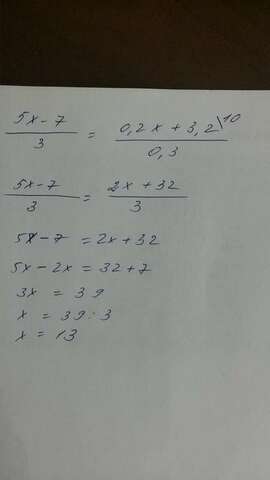 5x - 7 / 3 = 0,2x + 3,2 \10 / 0,3
5x - 7 / 3 = 2x + 32 / 3
5x - 7 = 2x + 32
5x - 2x = 32 + 7
3x = 39
x = 39 : 3
x = 13